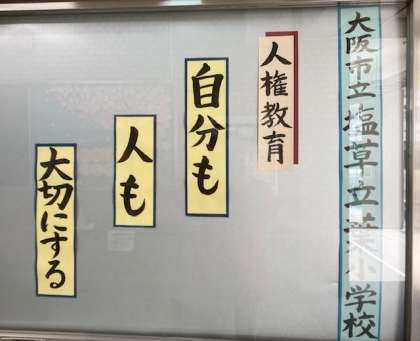 大阪市立塩草立葉小学校
人権教育
自分も
人も
大切にする